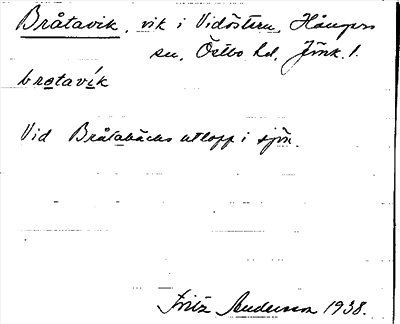 Bråtavik, vik i Vidöstern, Hångers
sn, Östbo hd, Jönk. l.
bretavík
Vid Bråtabäcks utlopp i sjön.
Fritz Andersson 1938.